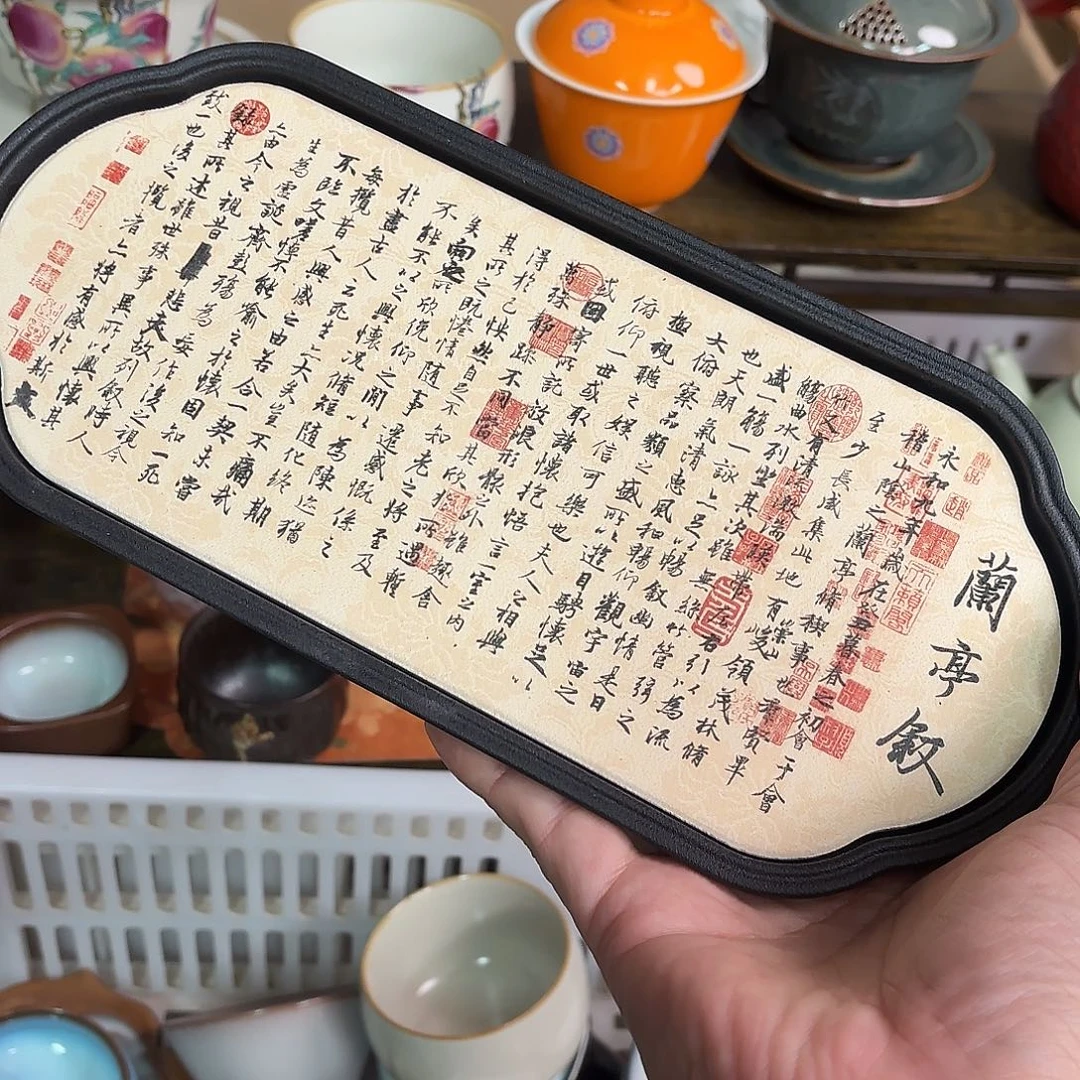 蘭亭敘
永和九年歲在癸丑暮春之初會于會
稽山陰之蘭亭脩稧事也羣賢畢
至少長咸集此地有崇山峻領茂林脩
竹又有清流激湍暎帶左右引以為流
觴曲水列坐其次雖無絲竹管弦之
盛一觴一詠亦足以暢敘幽情是日
也天朗氣清惠風和暢仰觀宇宙之
大俯察品類之盛所以遊目騁懷足以
極視聽之娛信可樂也夫人之相與
俯仰一世或取諸懷抱悟言一室之內
或因寄所託放浪形骸之外雖趣舍
萬殊靜躁不同當其欣於所遇暫
得於己快然自足不知老之將至及
其所之既惓情隨事遷感慨係之
矣向之所欣俛仰之閒以為陳迹猶
不能不以之興懷況脩短隨化終期
於盡古人云死生亦大矣豈不痛哉
每攬昔人興感之由若合一契未嘗
不臨文嗟悼不能喻之於懷固知一死
生為虛誕齊彭殤為妄作後之視今
亦由今之視昔悲夫故列敘時人
錄其所述雖世殊事異所以興懷其
致一也後之攬者亦將有感於斯文